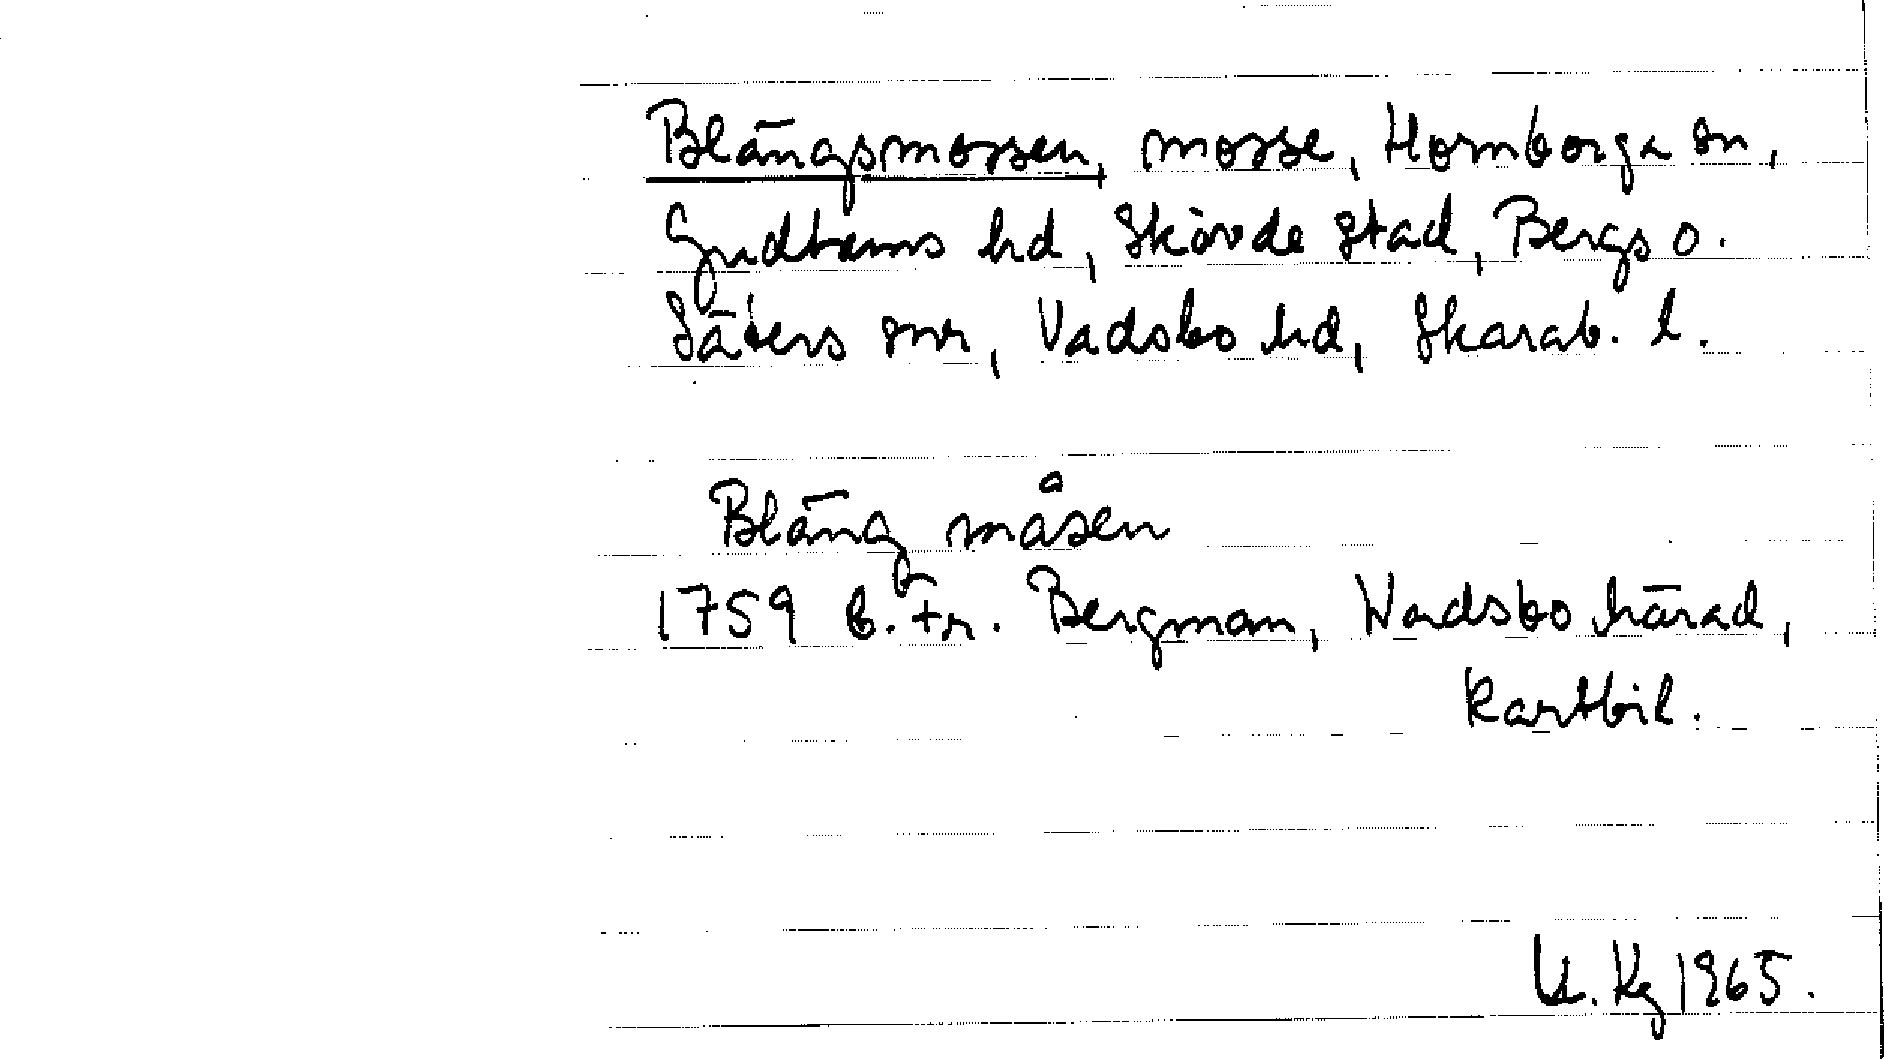 Blängsmossen, mosse, Hornborga sn,
Gudhems hd, Skövde stad, Bergs o.
Säters snr, Vadsbo hd, Skarab. l.
Bläng måsen
1759 B. Fr. Bergman, Wadsbo härad,
kartbil.
K. Kg 1965.